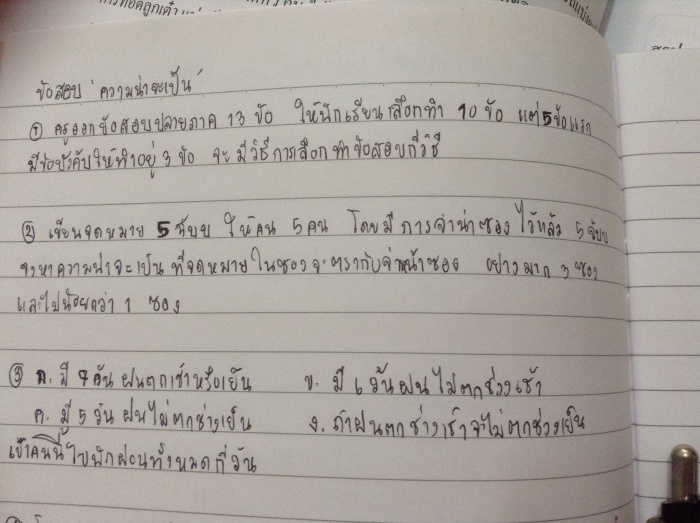 ข้อสอบ "ความน่าจะเป็น"
① ครูออกข้อสอบปลายภาค 13 ข้อ ให้นักเรียนเลือกทำ 10 ข้อ แต่ 5 ข้อแรก
มีข้อบังคับให้ทำอยู่ 3 ข้อ จะมีวิธีการเลือกทำข้อสอบกี่วิธี
② เขียนจดหมาย 5 ฉบับ ให้คน 5 คน โดยมีการจ่าหน้าซองไว้แล้ว 5 ฉบับ
จงหาความน่าจะเป็นที่จดหมายในซองจะตรงกับจ่าหน้าซอง อย่างมาก 3 ซอง
และไม่น้อยกว่า 1 ซอง
③ ก. มี 7 วันฝนตกเช้าหรือเย็น ข. มี 6 วันฝนไม่ตกช่วงเช้า
ค. มี 5 วัน ฝนไม่ตกช่วงเย็น ง. ถ้าฝนตกช่วงเช้าจะไม่ตกช่วงเย็น
เขาคนนี้ไปพักผ่อนทั้งหมดกี่วัน